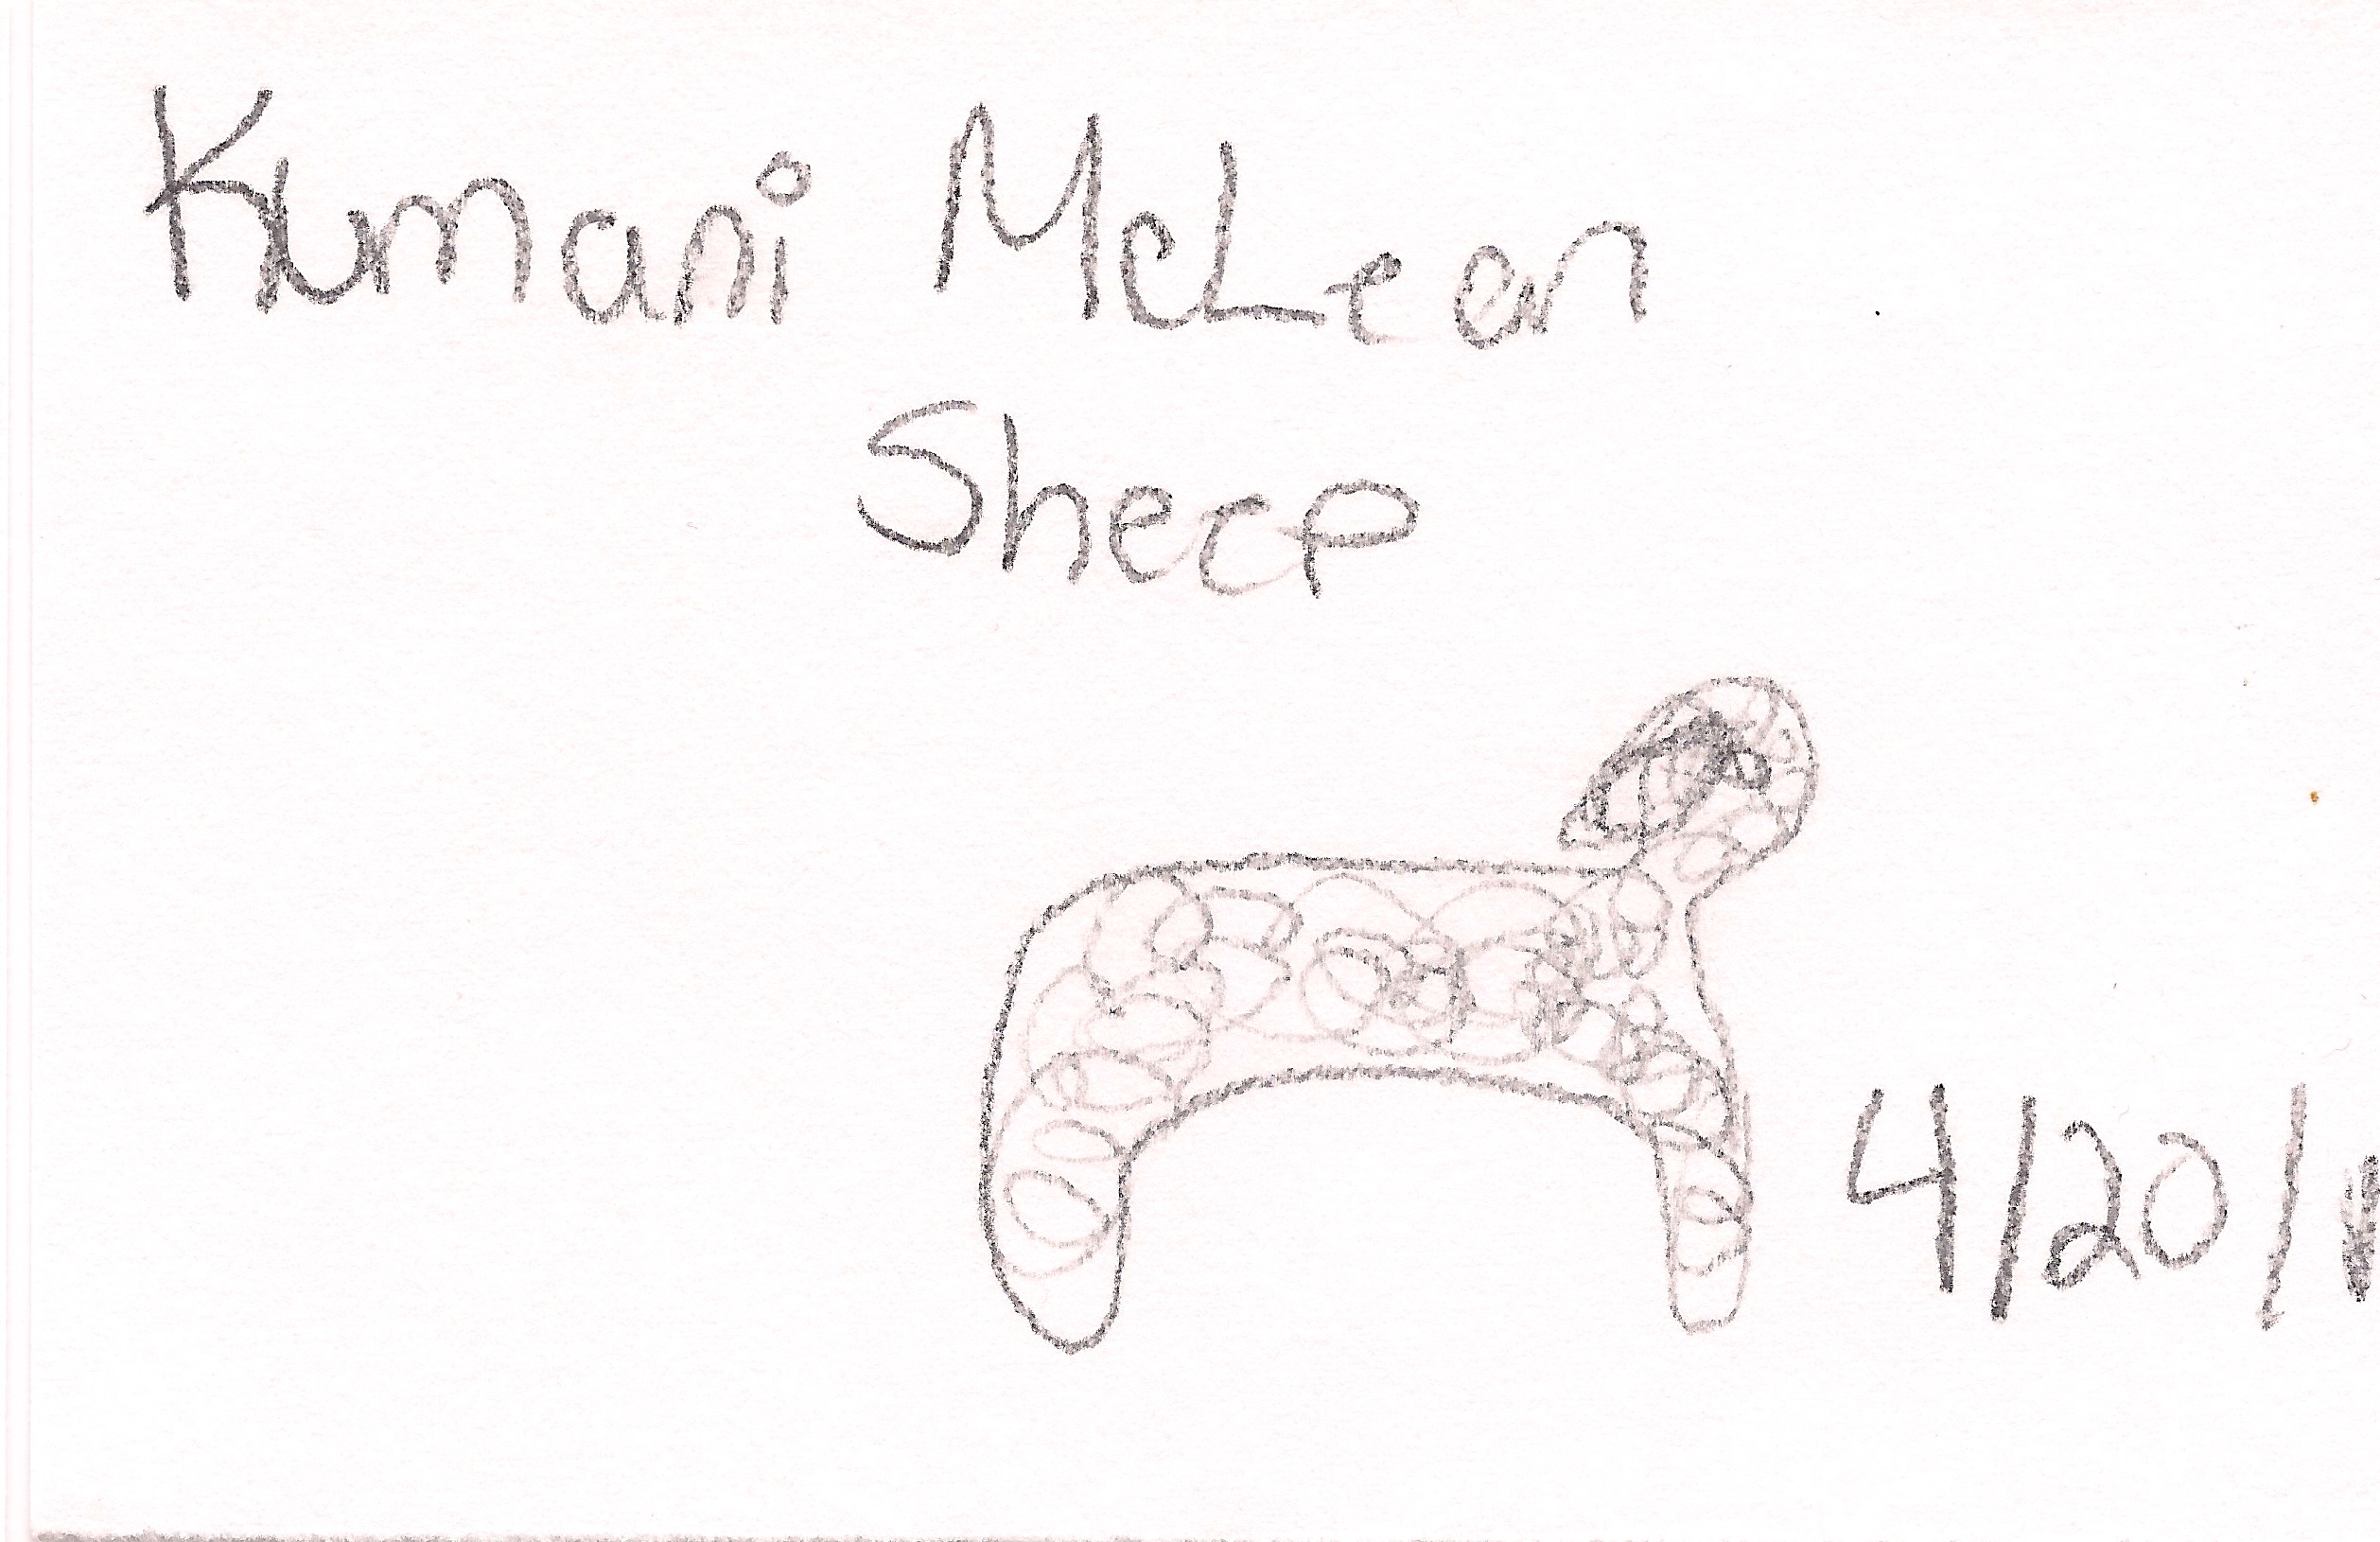 Kumani McLean
Sheep
4/20/1